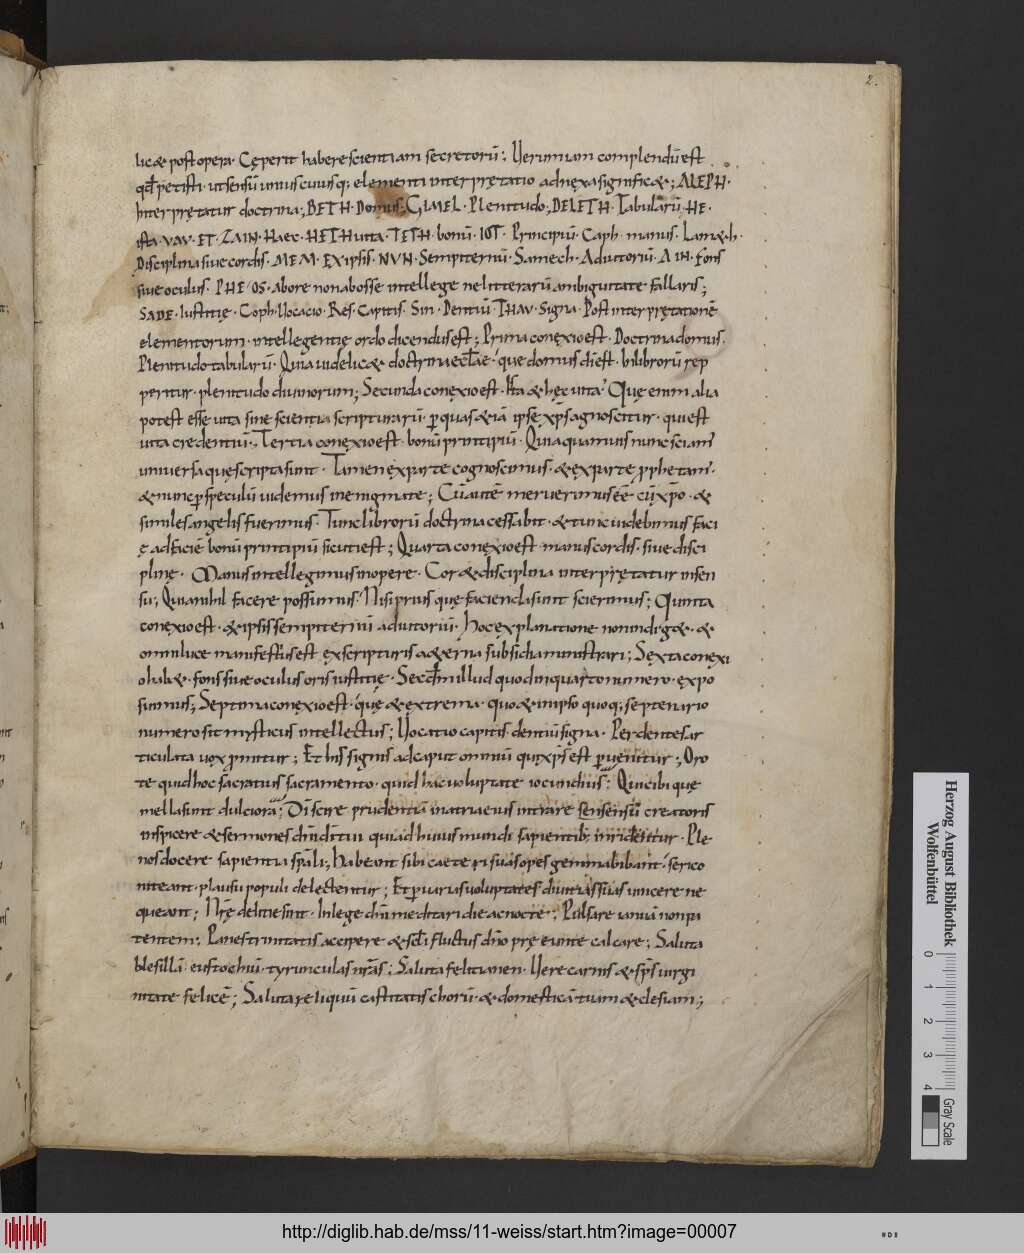 2.
lic& post opera· Cęperit habere scientiam secretorū;, Verum iam complendū est
qđ petisti· ut sensū unius cuiusq; elementi interprętatio adnexa signific&; ALEPH·
Interprętatur doctrina;, BETH· Domus; GIMEL· Plenitudo;, DELETH· Tabularū· HE·
ista· VAV· ET· ZAIN· Haec· HETH uita· TETH· bonū· IOT· Principiū· Caph· manus· Lam&h·
Disciplina siue cordis· MEM· EX ipsis· NVN· Sempiternū· Samech· Adiutoriū· AIN· fons
siue oculus· PHE· OS· ab ore non ab osse intellege ne litterarū ambiguitate fallaris;,
SADE· Iustitię· Coph· Uocacio· Res· Capitis· Sin· Dentiū· THAV· Signa· Post interprętationē
elementorum· intellegentię ordo dicendus est; Prima conexio est· Doctrina domus·
Plenitudo tabularū· Quia uidelic& doctrina ecłae· que domus dī est· bilibrorū rep
peritur· plenitudo diuinorum;, Secunda conexio est· Ista & hęc uita· Quę enim alia
potest esse uita sine scientia scripturarū· ꝑ quas &iā ipse xp̄s agnoscitur· qui est
uita credentiū;, Tertia conexio est· bonū principiū· Quia quamuis nunc sciam
uniuersa quę scripta sunt· Tamen ex parte cognoscimus· & ex parte prophetam·
& nunc ꝑ speculū uidemus in enigmate; Cū autē meruerimus eē cū xp̄o· &
similes angelis fuerimus· Tunc librorū doctrina cessabit· & tunc uidebimus faci
ę ad faciē bonū principiū sicuti est; Quarta conexio est· manus cordis· siue disci
plinę· Manus intellegimus in opere· Cor & disciplina interprętatur in sen
su; Quia nihil facere possumus· Nisi prius quę facienda sunt scierimus; Quinta
conexio est· & ipsis sempiternū adiutoriū· Hoc explanatione non indig&· &
omni luce manifestius est ex scripturis a&erna subsidia ministrari; Sexta conexi
o hab&· fons siue oculus oris iustitię· Secđm illud quod in quarto numero· expo
suimus;, Septima conexio est· quę & extrema· quo & in ipso quoq; septenario
numero sit mysticus intellectus; Uocatio capitis dentiū signa· Per dentes ar
ticulata uox primitur; Et his signis ad caput omniū qui xp̄s est ꝑuenitur;, Oro
te quid hoc sacratius sacramento· quid hac uoluptate iocundius; Qui cibi quę
mella sunt dulciora; Dī scire prudentiā in atria eius intrare sensensū creatoris
inspicere & sermones dn̄i dī tui qui ad huius mundi sapientib; inridentur· Ple
nos docere sapientia sp̄ali;, Habeant sibi caeteri suas opes gemma bibant· serico
niteant· plausu populi delectentur; Et ꝑ uarus uoluptates diuitias suas uincere ne
queant; Nr̄ę delitie sint· In lege dn̄i meditari die ac nocte; Pulsare ianuā non pa
tentem; Panes trinitatis accipere & scł i fluctus dn̄o pręeunte calcare; Saluta
blesillā· eustochiū· tyrunculas nr̄as; Saluta felicianen· Vere carnis & sp̄s uirgi
nitate felicē; Saluta reliquū castitatis chorū· & domesticā tuam &clesiam;,
Herzog August Bibliothek
Wolfenbüttel
0 1 2 3 4
Gray Scale
http://diglib.hab.de/mss/11-weiss/start.htm?image=00007